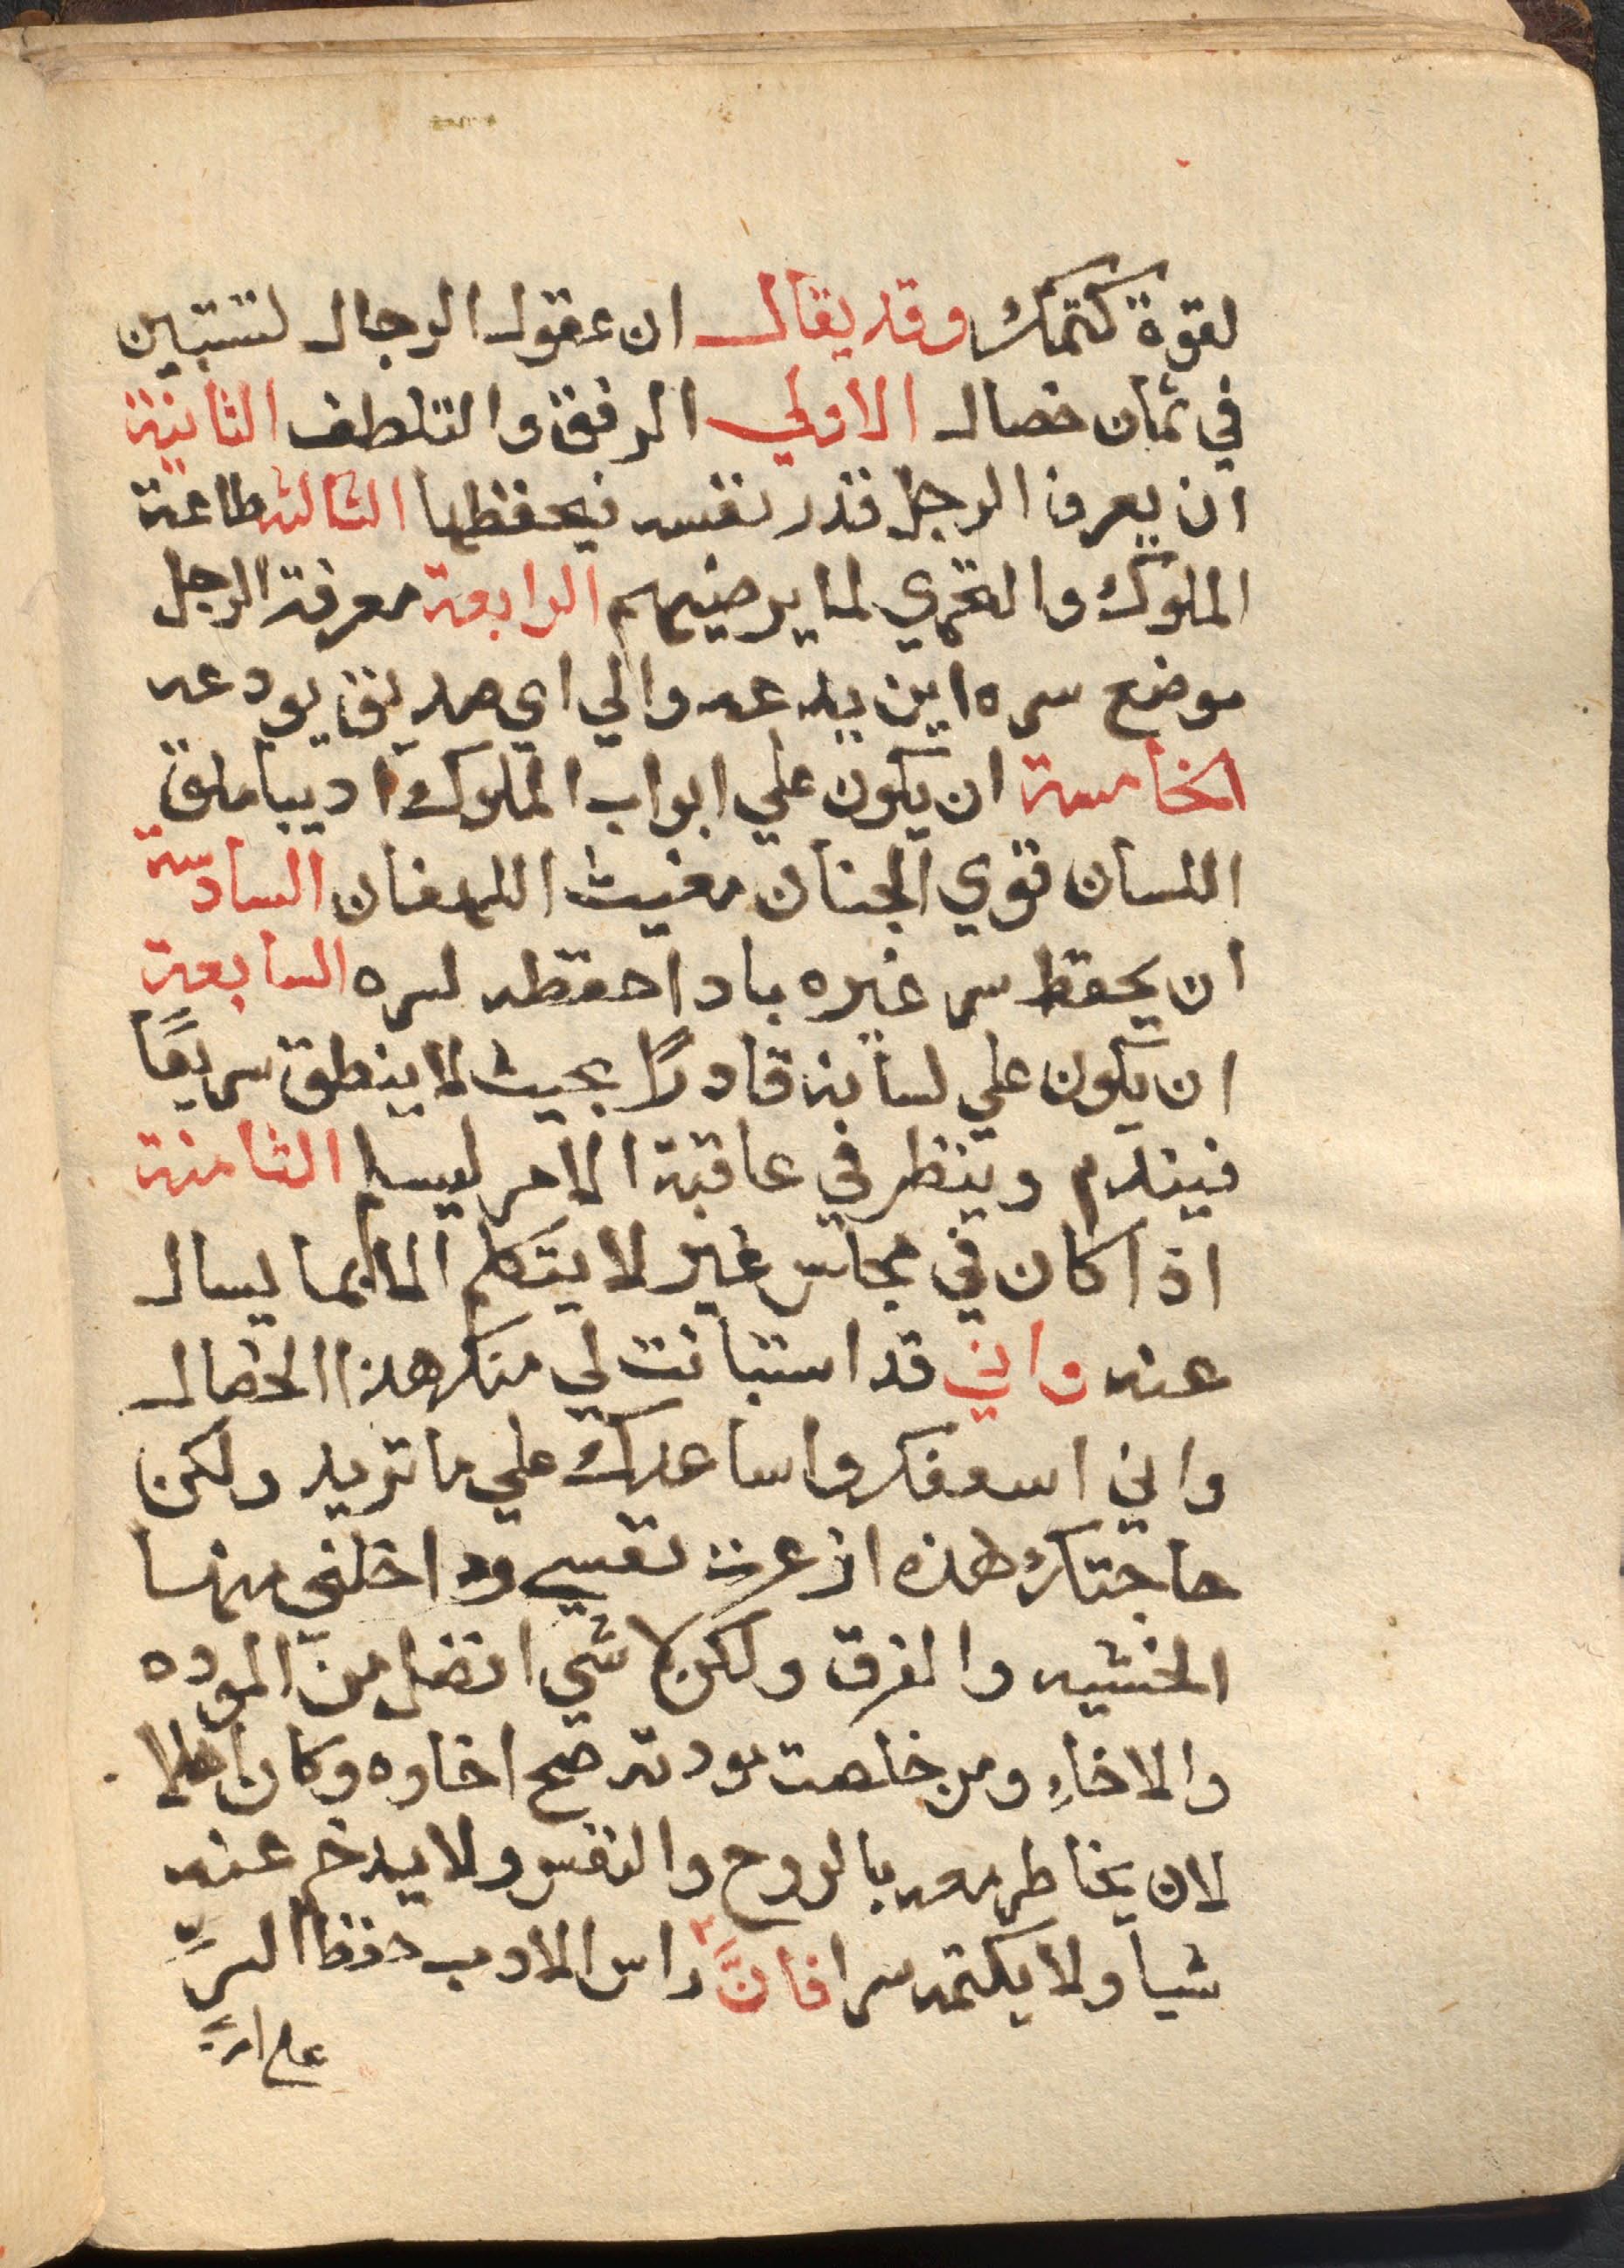 لقوة كتمك وقد يقال ان عقول الرجال لتتبين
في ثمان خصال الاولي الرفق والتلطف الثانية
ان يعرف الرجل قدر نفسه فيحفظها الثالثه طاعة
الملوك والتحري لما يرضيهم الرابعة معرفة الرجل
موضع سره اين يدعه والي اي صديق يودعه
الخامسة ان يكون علي ابواب الملوك اديبا ملق
اللسان قوي الجنان مغيث اللهفان السادسة
ان يحفظ سر غيره باد احفظه لسره السابعة
ان يكون علي لسانه قادرًا بحيث لا ينطق سريعًا
فيندم وينظر في عاقبة الامر ليسلم الثامنة
اذا كان في مجلس غير لا يتكلم الا بما يسال
عنه واني قد استبانت لي منك هذا الخصال
واني اسعفك واساعدك علي ما تريد ولكن
حاجتك هذه ازعرت نفسي وداخلني منها
الخشيه والفرق ولكن لا شي افضل من الموده
والاخاءِ ومن خلصت مودته صح اخاوه وكان اهلا
لان يخاطر معه بالروح والنفس ولا يدخر عنه
شيا ولا يكتمه سرا فانَّ راس الادب حفظ السرِّ